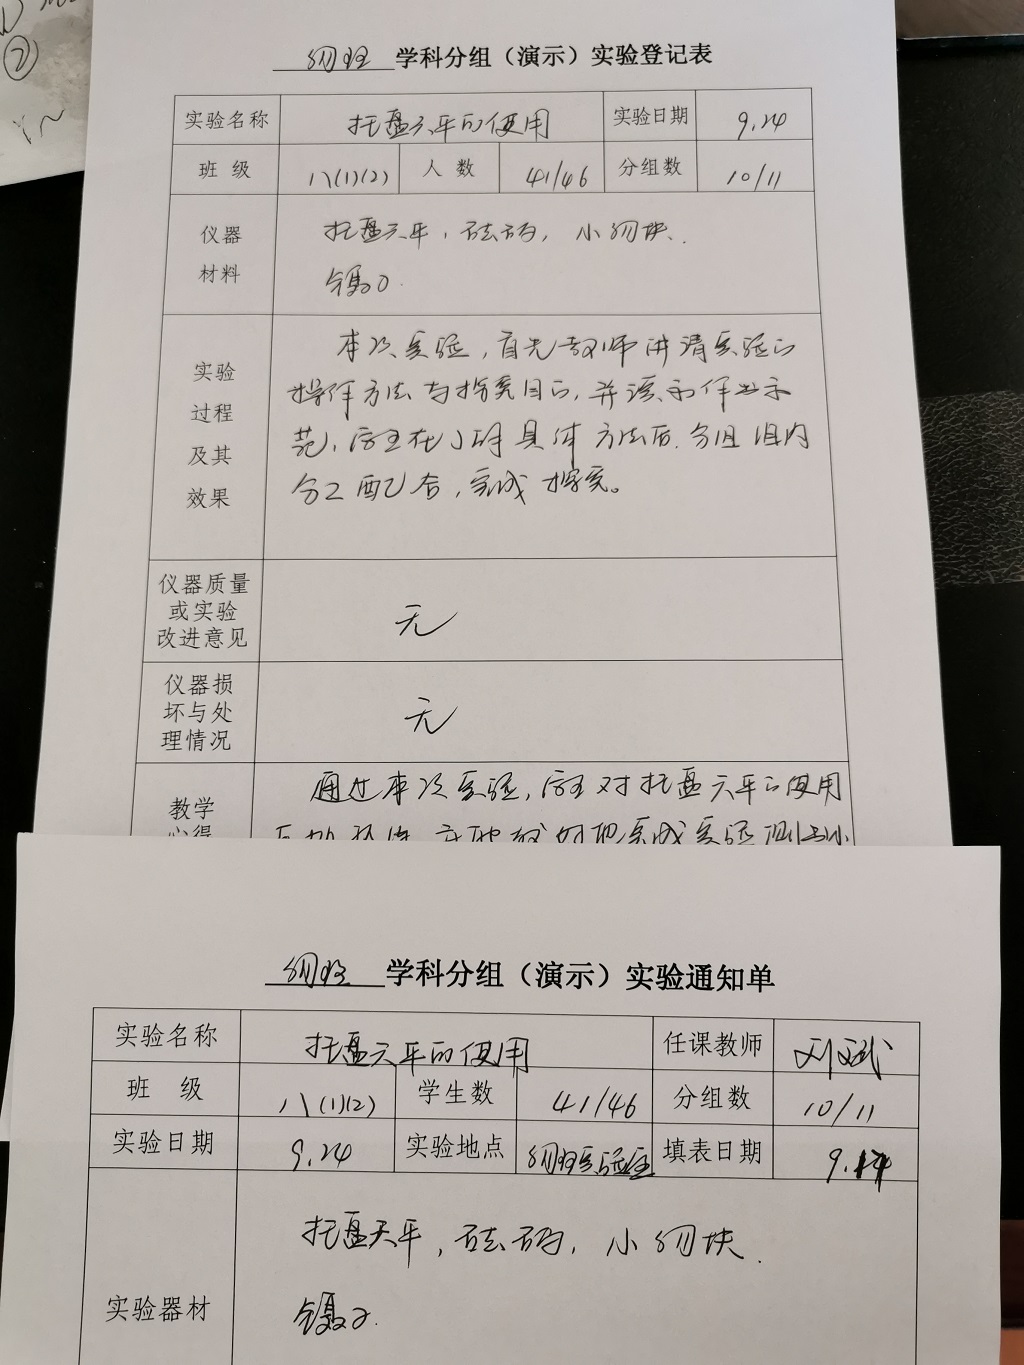 ②
物理 学科分组（演示）实验登记表
实验名称 托盘天平的使用 实验日期 9.24
班 级 八(1)(2) 人 数 41/46 分组数 10/11
仪器 托盘天平，砝码，小物块.
材料 镊子.
实验 本次实验，首先教师讲清实验的
过程 操作方法与探究目的，并演示作出示
及其 范，学生在了解具体方法后.分组 组内
效果 分工配合，完成探究。
仪器质量
或实验 无
改进意见
仪器损
坏与处 无
理情况
教学 通过本次实验，学生对托盘天平的使用
心得 完成实验
物理 学科分组（演示）实验通知单
实验名称 托盘天平的使用 任课教师 刘斌
班 级 八(1)(2) 学生数 41/46 分组数 10/11
实验日期 9.24 实验地点 物理实验室 填表日期 9.14
托盘天平，砝码，小物块.
实验器材 镊子.